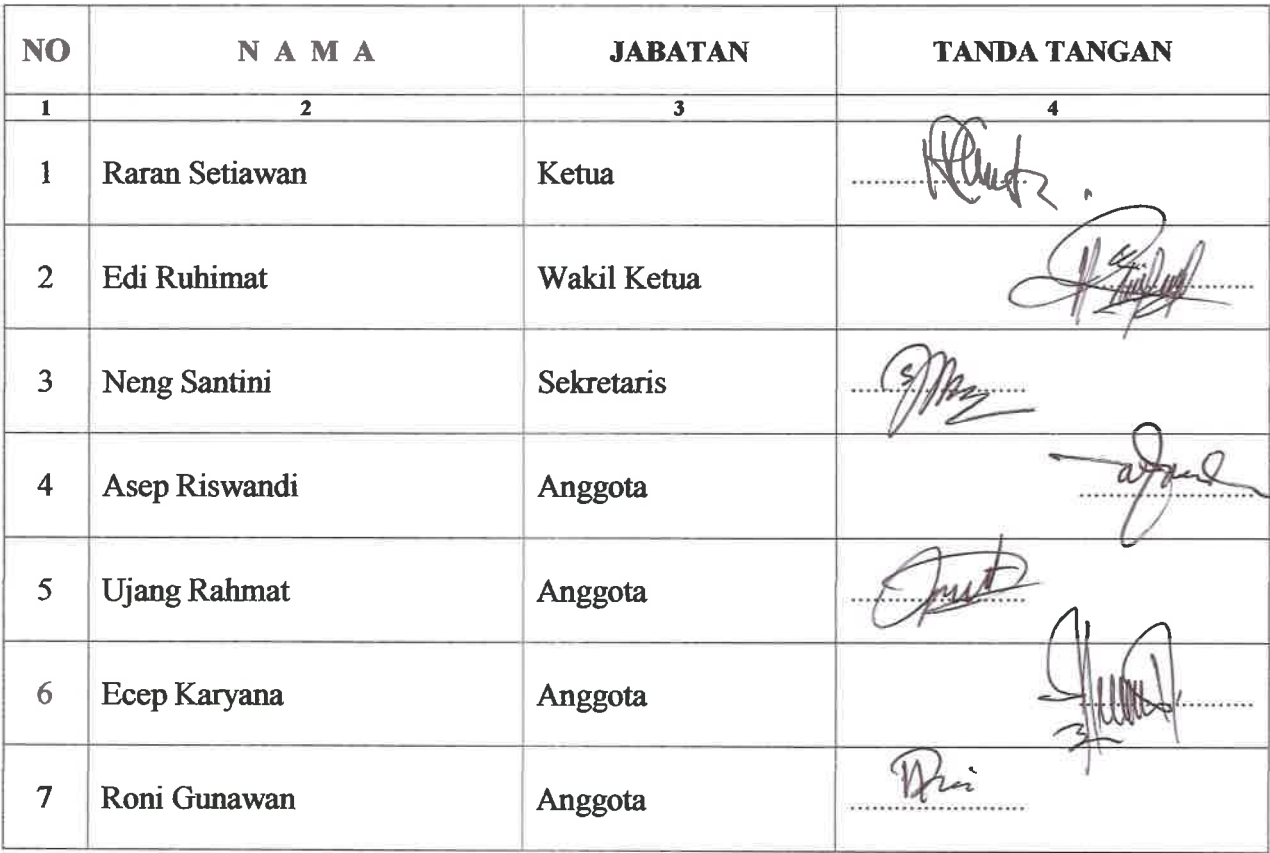 NO N A M A JABATAN TANDA TANGAN
1 2 3 4
1 Raran Setiawan Ketua ....................
2 Edi Ruhimat Wakil Ketua ....................
3 Neng Santini Sekretaris ....................
4 Asep Riswandi Anggota ....................
5 Ujang Rahmat Anggota ....................
6 Ecep Karyana Anggota ....................
7 Roni Gunawan Anggota ....................